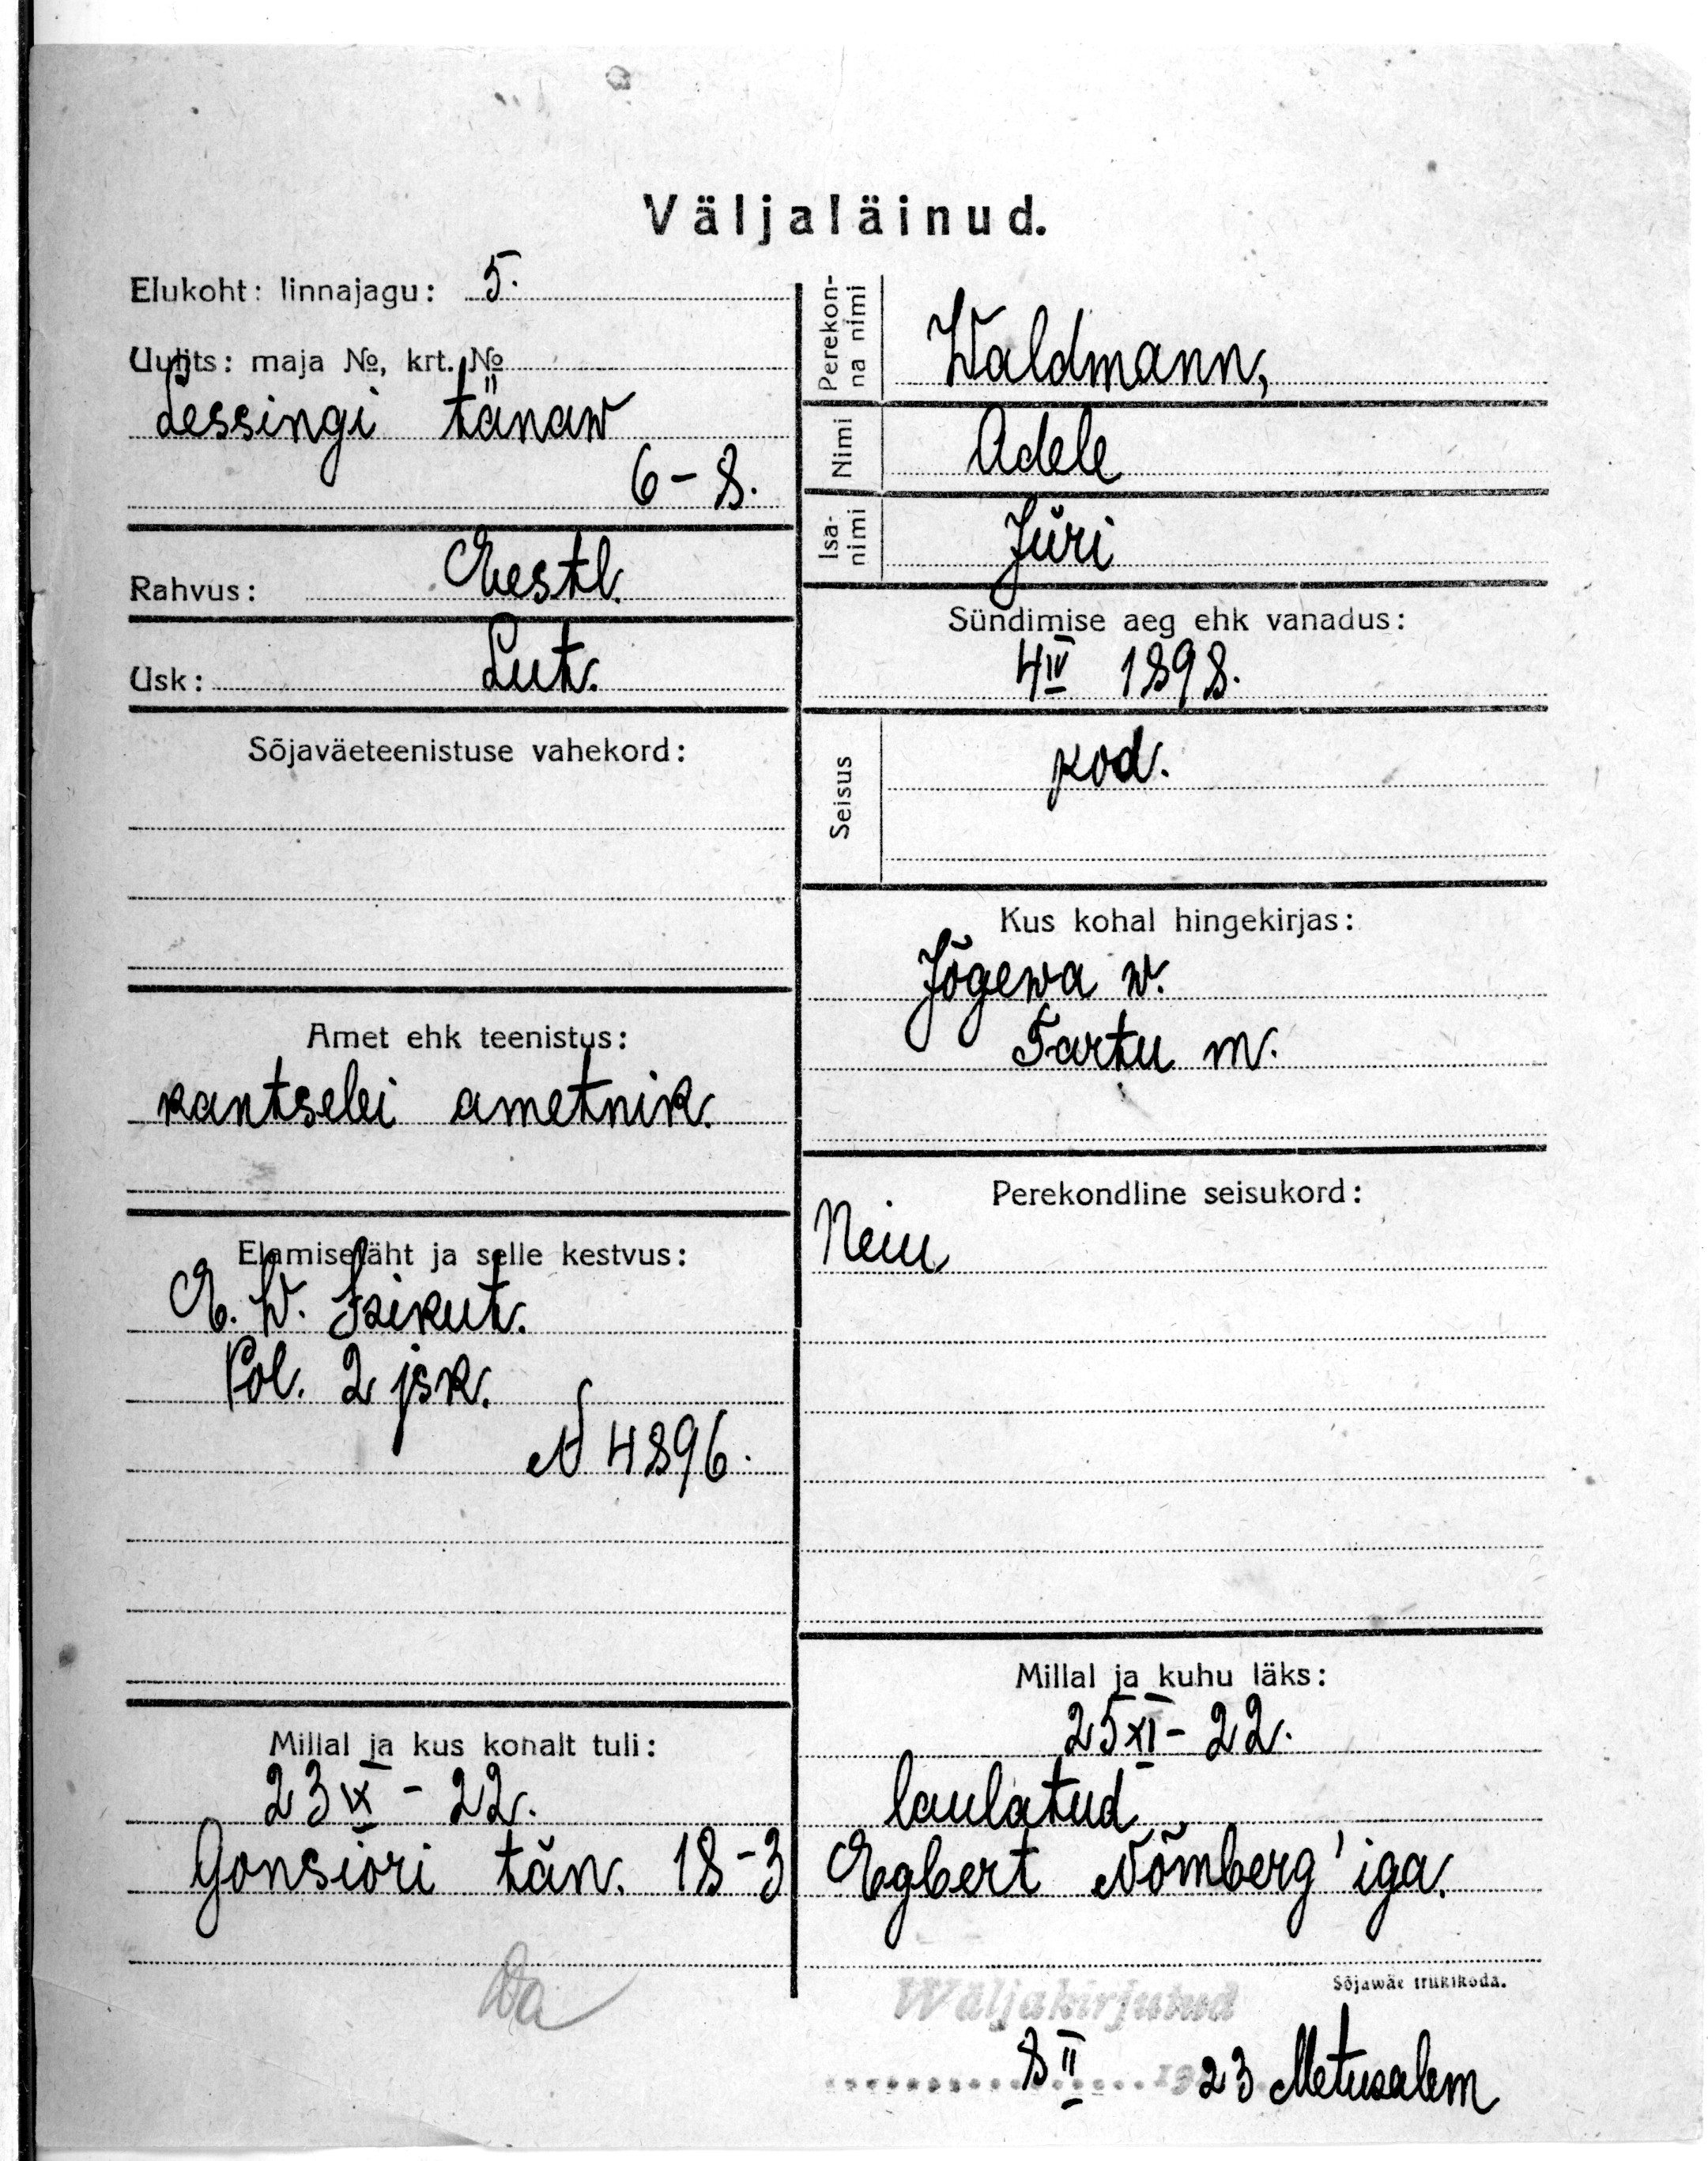 Väljaläinud.
Elukoht: linnajagu: 5.
Uulits: maja №, krt. №
Lessingi tänaw
6-8.
Rahvus: Eestl.
Usk: Lut.
Sõjaväeteenistuse vahekord:
Amet ehk teenistus:
kantselei ametnik.
Elamiseläht ja selle kestvus:
E. W. Isikut.
Pol. 2 jsk.
N 4896.
Millal ja kus kohalt tuli:
23 IX - 22.
Gonsiori tän. 18-3
Perekon-
na nimi
Waldmann,
Nimi
Adele
Isa-
nimi
Jüri
Sündimise aeg ehk vanadus:
4 IV 1898.
Seisus
kod.
Kus kohal hingekirjas:
Jõgewa w.
Tartu m.
Perekondline seisukord:
Neiu
Millal ja kuhu läks:
25 XI - 22.
laulatud
Egbert Nõmberg'iga.
Sõjawäe trükikoda.
Wa
Wäljakirjutud
8 II 1923 Metusalem